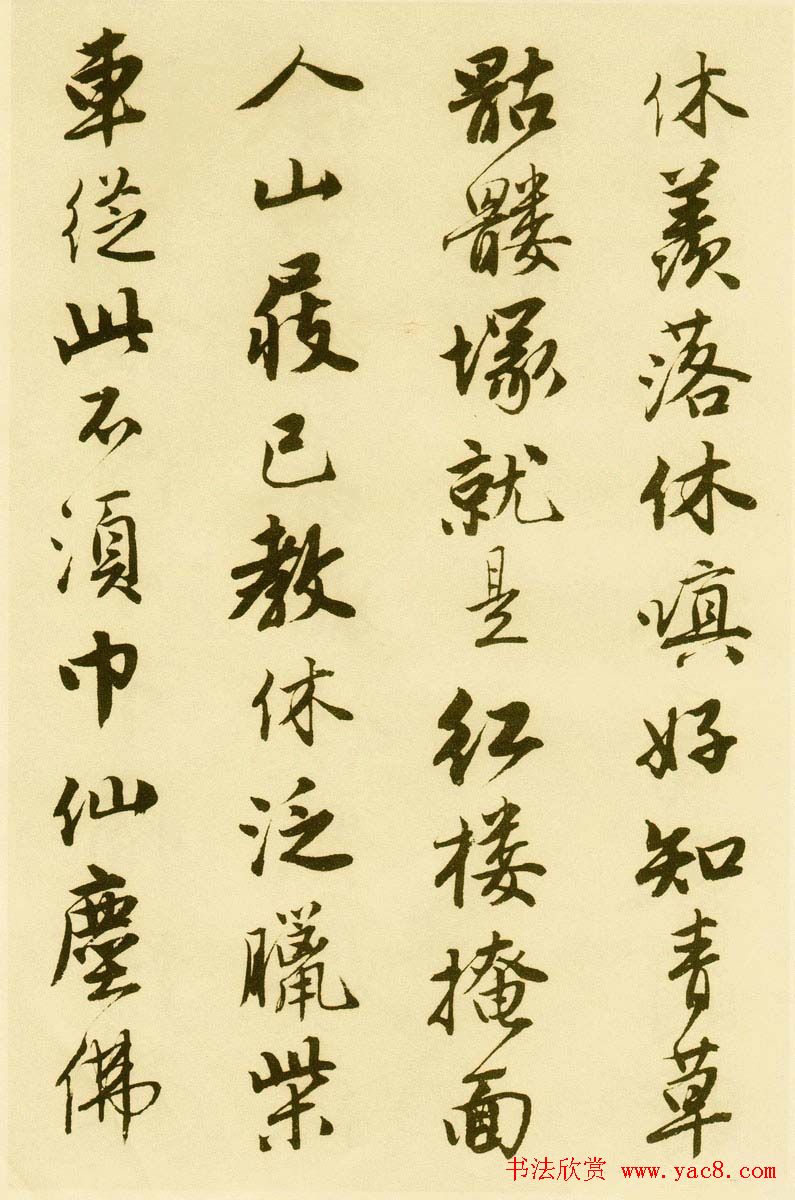 休羨落休嗔好知青草
骷髏塚就是紅樓掩面
人山屐已教休泛臘柴
車從此不須巾仙塵佛
书法欣赏 www.yac8.com